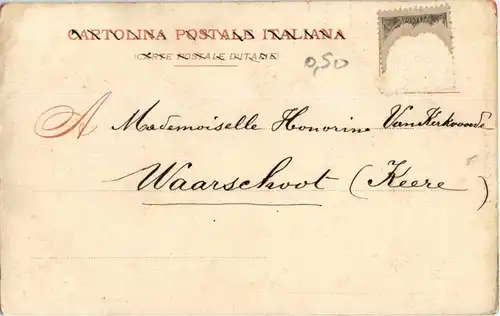 CARTOLINA POSTALE ITALIANA
(CARTE POSTALE D'ITALIE)
0,50
A Mademoiselle Honorine VanKerkvoorde
Waarschoot (Keere)